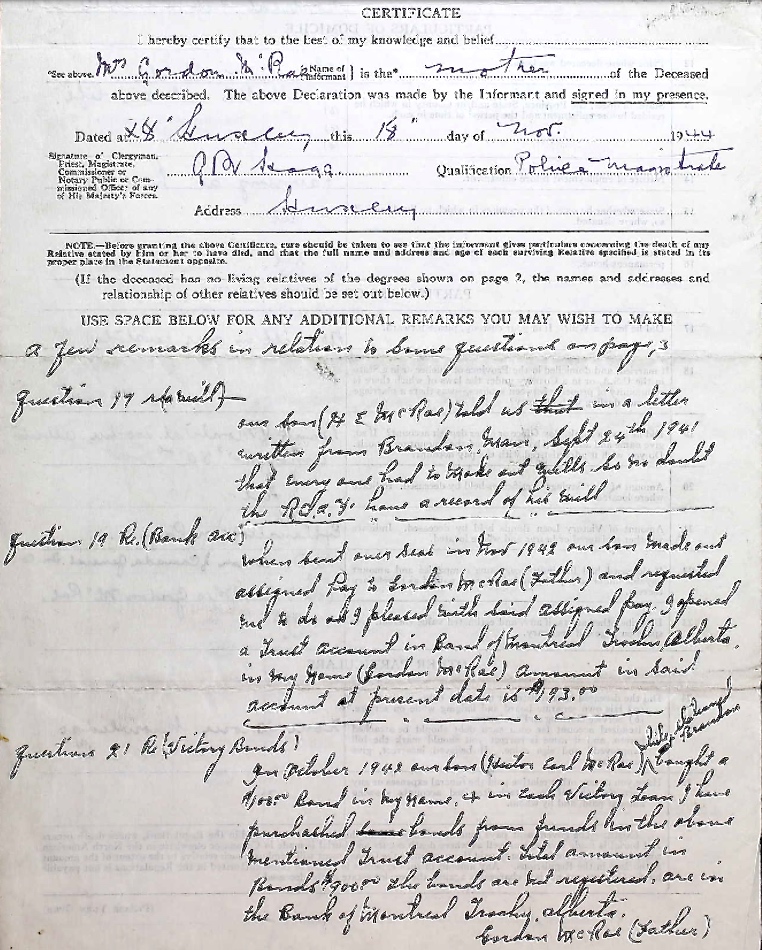 CERTIFICATE
I hereby certify that to the best of my knowledge and belief
*See above. Mrs Gordon McRae Name of Informant } is the* mother of the Deceased
above described. The above Declaration was made by the Informant and signed in my presence.
Dated at Huxley this 18" day of Nov. 1944
Signature of Clergyman, Priest, Magistrate, Commissioner or Notary Public or Commissioned Officer of any of His Majesty's Forces.
Qualification Police Magistrate
Address Huxley
NOTE.—Before granting the above Certificate, care should be taken to see that the informant gives particulars concerning the death of any
Relative stated by him or her to have died, and that the full name and address and age of each surviving Relative specified is stated in its
proper place in the Statement opposite.
(If the deceased has no living relatives of the degrees shown on page 2, the names and addresses and
relationship of other relatives should be set out below.)
USE SPACE BELOW FOR ANY ADDITIONAL REMARKS YOU MAY WISH TO MAKE
A few remarks in relation to some questions on page, 3
Question 17 re (will)
our son (H E McRae) told us that in a letter
written from Brandon Man, Sept 24th 1941
that every one had to make out wills. so no doubt
the R.C.A.F. have a record of his will
Question 19 Re. (Bank acc)
when sent over seas in Nov 1942 our son made out
assigned Pay to Gordon McRae (Father) and requested
me to do as I pleased with said assigned pay. I opened
a Trust account in Bank of Montreal Trochu, Alberta.
in my name (Gordon McRae) Amount in said
account at present date is $193.00
Questions 21 Re (Victory Bonds)
In October 1942 our son (Hector Earl McRae) while stationed Brandon bought a
$100.00 Bond in my name, & in each Victory Loan I have
purchased bonds from funds in the above
mentioned Trust account. total amount in
Bonds $900.00 the bonds are not registered, are in
the Bank of Montreal Trochu, Alberta.
Gordon McRae (Father)